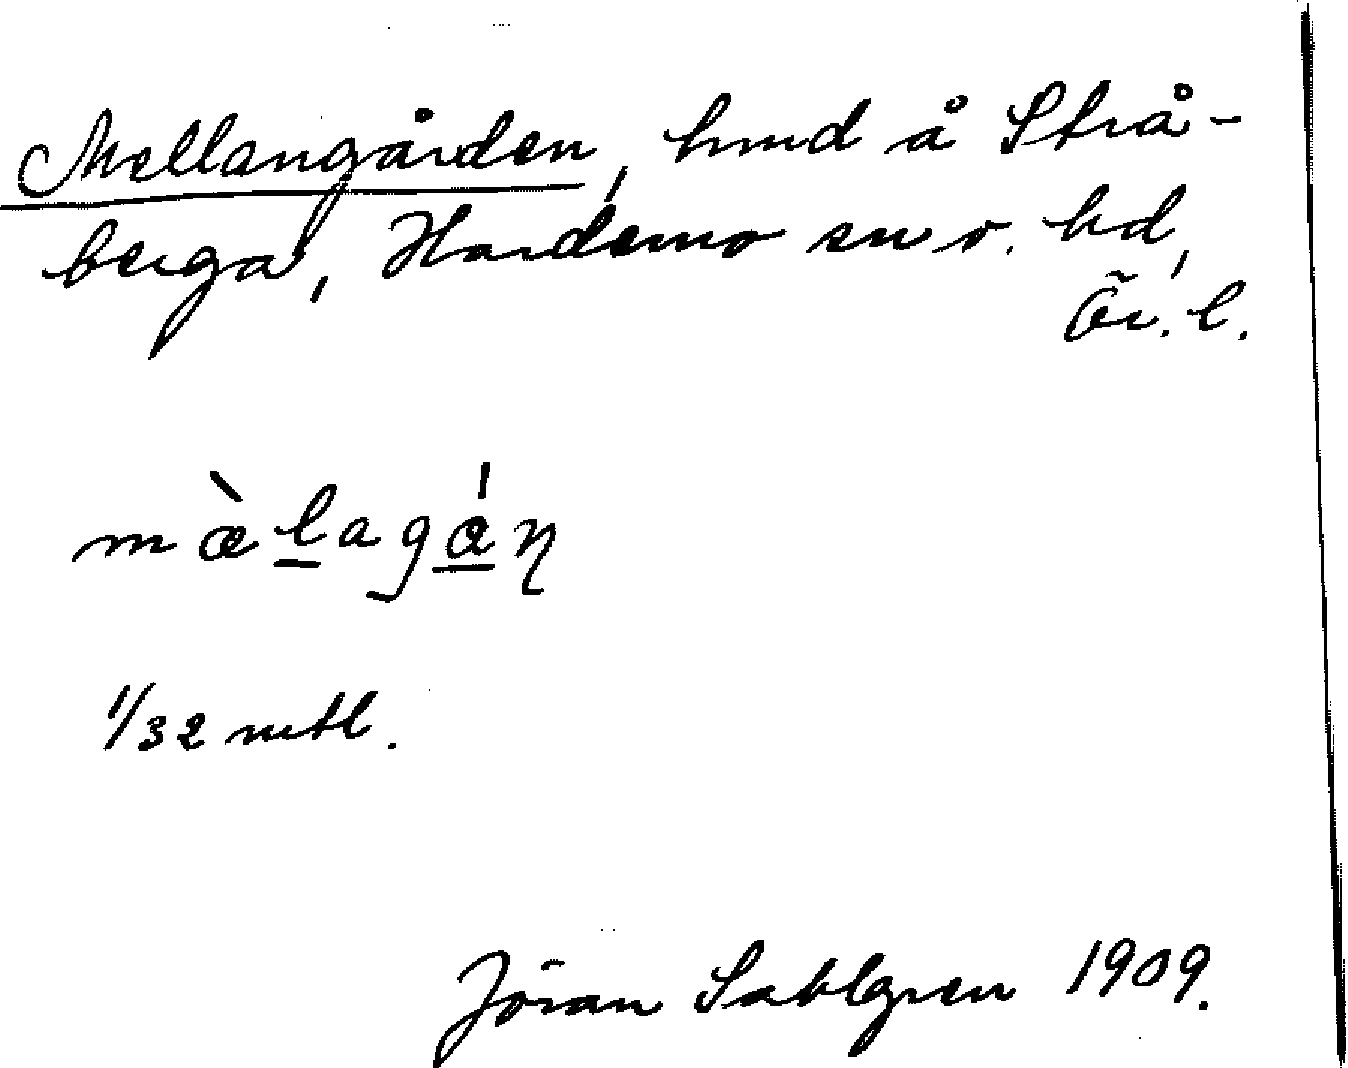 Mellangården, hmd å Strå-
berga, Hardemo sn o. hd,
Ör. l.
mæ̀lagáɳ
1/32 mtl.
Jöran Sahlgren 1909.